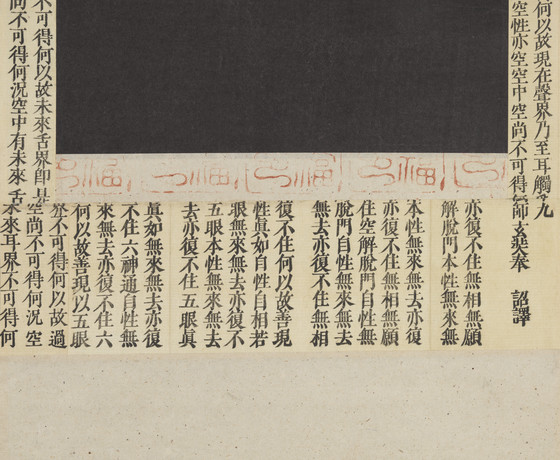 何以故現在聲界乃至耳觸
九
空性亦空空中空尚不可得
師玄奘奉　詔譯
亦復不住無相無願
解脫門本性無來無
本性無來無去亦復
亦復不住無相無願
住空解脫門自性無
脫門自性無來無去
無去亦復不住無相
復不住何以故善現
性真如自性自相若
眼無來無去亦復不
五眼本性無來無去
去亦復不住五眼真
真如無來無去亦復
不住六神通自性無
來無去亦復不住六
何以故善現以五眼
不可得何以故未來舌界即是
界不可得何以故過
尚不可得何況空中有未來舌
空尚不可得何況空
未來耳界不可得何